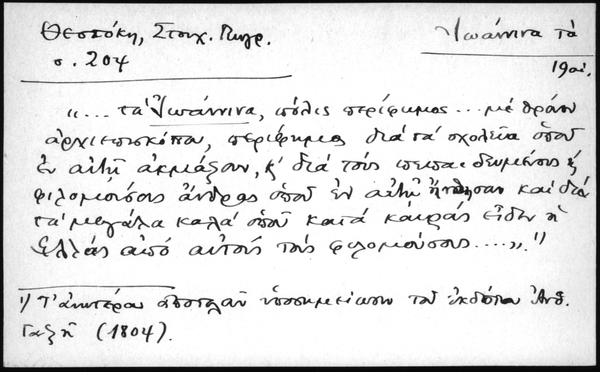 Θεοτόκη, Στοιχ. Γεωγρ.
σ. 204
Ἰωάννινα τὰ
19 αἰ.
"... τὰ Ἰωάννινα, πόλις περίφημος ... μὲ θρόνον
ἀρχιεπισκόπου, περίφημος διὰ τὰ σχολεῖα ὁποῦ
ἐν αὐτῇ ἀκμάζουν, κ' διὰ τοὺς πεπαιδευμένους κ'
φιλομούσους ἄνδρας ὁποῦ ἐν αὐτῇ ἤνθησαν καὶ διὰ
τὰ μεγάλα καλὰ ὁποῦ κατὰ καιροὺς εἶδεν ἡ
Ἑλλὰς ἀπὸ αὐτοὺς τοὺς φιλομούσους ....". 1)
1) Τ' ἀνωτέρω ἀποτελοῦν ὑποσημείωσιν τοῦ ἐκδότου Ἀνθ.
Γαζῆ (1804).